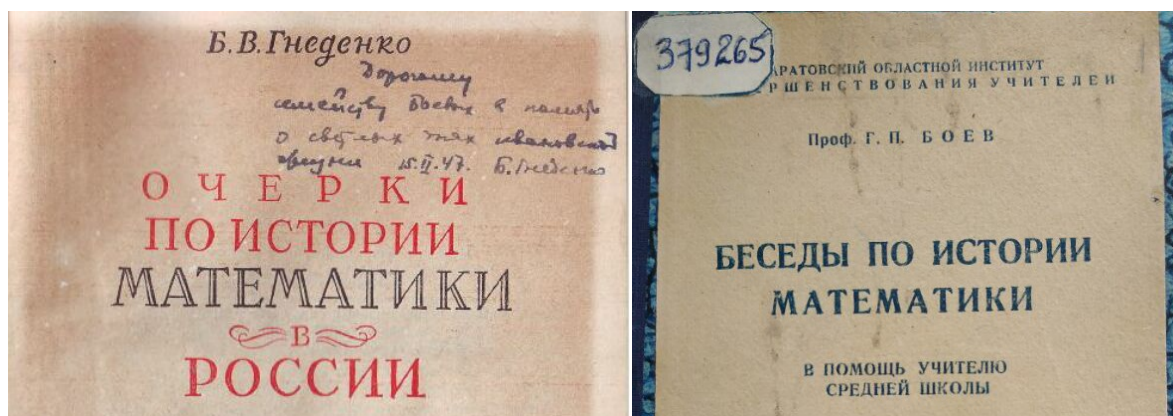 Б. В. Гнеденко
Дорогому
семейству Боевых в память
о светлых днях ивановской
жизни 15.II.47. Б. Гнеденко
ОЧЕРКИ
ПО ИСТОРИИ
МАТЕМАТИКИ
В
РОССИИ
379265
АРАТОВСКИЙ ОБЛАСТНОЙ ИНСТИТУТ
РШЕНСТВОВАНИЯ УЧИТЕЛЕЙ
Проф. Г. П. БОЕВ
БЕСЕДЫ ПО ИСТОРИИ
МАТЕМАТИКИ
В ПОМОЩЬ УЧИТЕЛЮ
СРЕДНЕЙ ШКОЛЫ